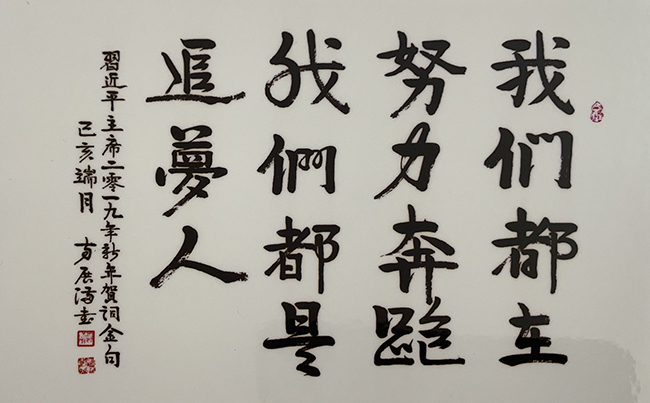 我们都在
努力奔跑
我們都是
追夢人
習近平主席二零一九年新年賀詞金句
己亥端月 方展